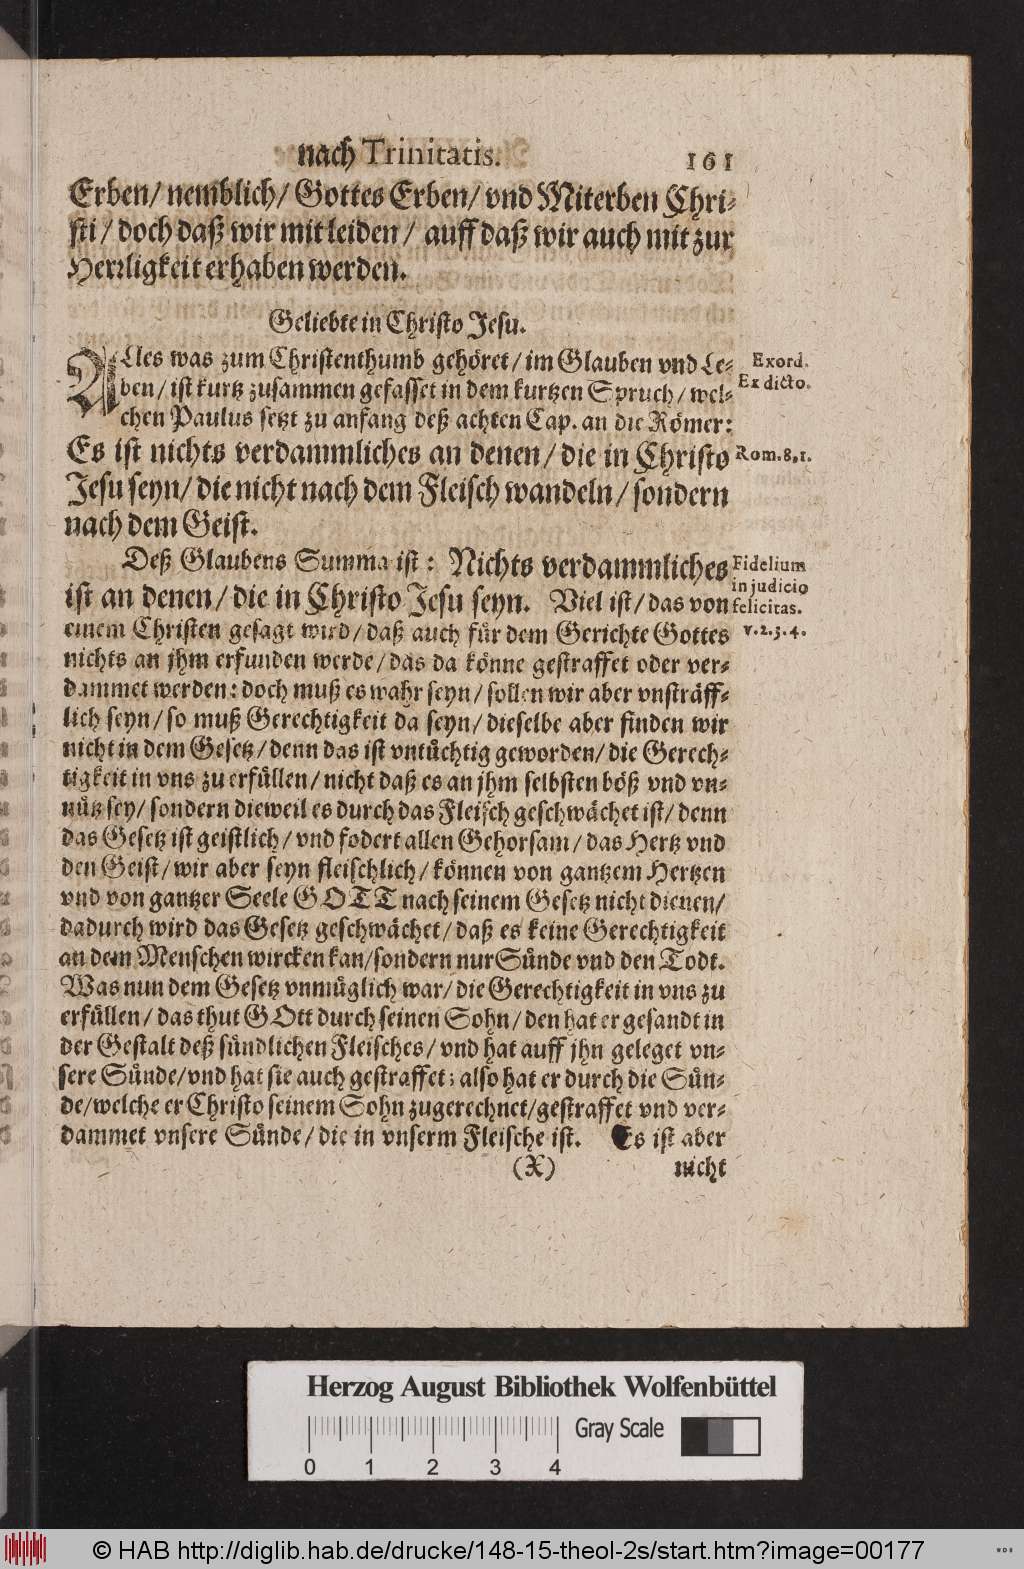 nach Trinitatis. 161
Erben/ nemblich/ Gottes Erben/ vnd Miterben Chri-
sti/ doch daß wir mit leiden/ auff daß wir auch mit zur
Herrligkeit erhaben werden.
Geliebte in Christo Jesu.
ALles was zum Christenthumb gehöret/ im Glauben vnd Le-
ben/ ist kurtz zusammen gefasset in dem kurtzen Spruch/ wel-
chen Paulus setzt zu anfang deß achten Cap. an die Römer:
Exord.
Ex dicto.
Es ist nichts verdammliches an denen/ die in Christo
Rom. 8, 1.
Jesu seyn/ die nicht nach dem Fleisch wandeln/ sondern
nach dem Geist.
Deß Glaubens Summa ist: Nichts verdammliches
ist an denen/ die in Christo Jesu seyn. Viel ist/ das von
Fidelium
in judicio
felicitas.
v. 2. 3. 4.
einem Christen gesagt wird/ daß auch für dem Gerichte Gottes
nichts an jhm erfunden werde/ das da könne gestraffet oder ver-
dammet werden: doch muß es wahr seyn/ sollen wir aber vnsträff-
lich seyn/ so muß Gerechtigkeit da seyn/ dieselbe aber finden wir
nicht in dem Gesetz/ denn das ist vntüchtig geworden/ die Gerech-
tigkeit in vns zu erfüllen/ nicht daß es an jhm selbsten böß vnd vn-
nütz sey/ sondern dieweil es durch das Fleisch geschwächet ist/ denn
das Gesetz ist geistlich/ vnd fodert allen Gehorsam/ das Hertz vnd
den Geist/ wir aber seyn fleischlich/ können von gantzem Hertzen
vnd von gantzer Seele GOTT nach seinem Gesetz nicht dienen/
dadurch wird das Gesetz geschwächet/ daß es keine Gerechtigkeit
an dem Menschen wircken kan/ sondern nur Sünde vnd den Todt.
Was nun dem Gesetz vnmüglich war/ die Gerechtigkeit in vns zu
erfüllen/ das thut GOtt durch seinen Sohn/ den hat er gesandt in
der Gestalt deß sündlichen Fleisches/ vnd hat auff jhn geleget vn-
sere Sünde/ vnd hat sie auch gestraffet; also hat er durch die Sün-
de/ welche er Christo seinem Sohn zugerechnet/ gestraffet vnd ver-
dammet vnsere Sünde/ die in vnserm Fleische ist. Es ist aber
(X) nicht
Herzog August Bibliothek Wolfenbüttel
Gray Scale
0 1 2 3 4
© HAB http://diglib.hab.de/drucke/148-15-theol-2s/start.htm?image=00177